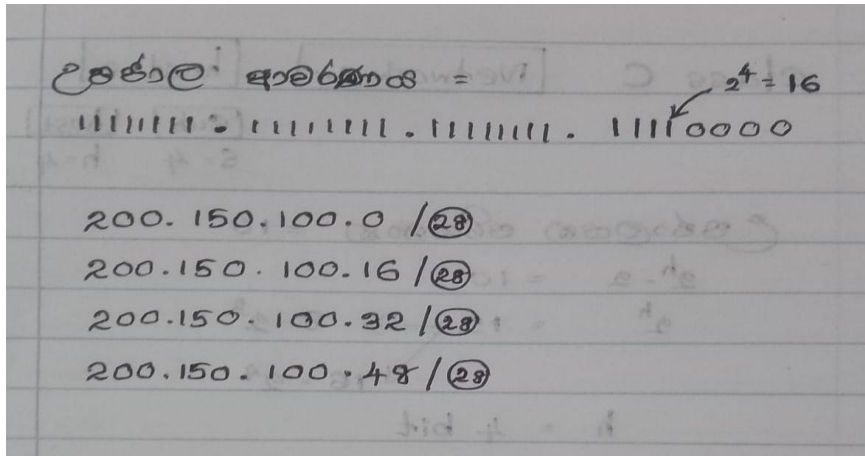 උපජාල ආවරණය =
2⁴ = 16
11111111 . 11111111 . 11111111 . 11110000
200.150.100.0 /28
200.150.100.16 /28
200.150.100.32 /28
200.150.100.48 /28